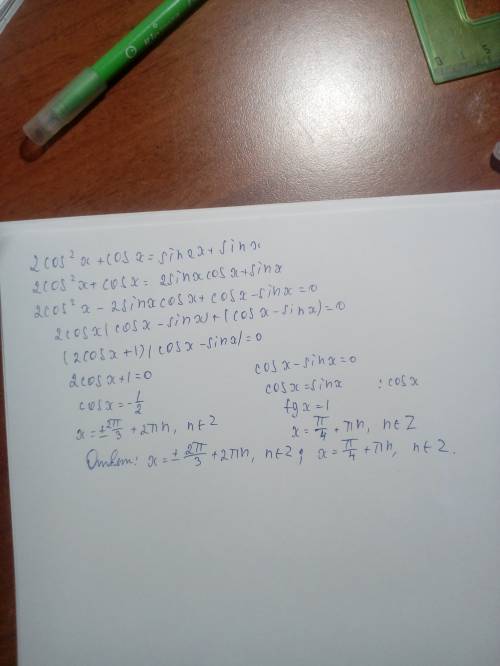 2cos²x + cosx = sin2x + sinx
2cos²x + cosx = 2sinxcosx + sinx
2cos²x - 2sinxcosx + cosx - sinx = 0
2cosx(cosx - sinx) + (cosx - sinx) = 0
(2cosx + 1)(cosx - sinx) = 0
2cosx + 1 = 0
cosx = -1/2
x = ± 2π/3 + 2πn, n ∈ Z
cosx - sinx = 0
cosx = sinx : cosx
tgx = 1
x = π/4 + πn, n ∈ Z
Ответ: x = ± 2π/3 + 2πn, n ∈ Z; x = π/4 + πn, n ∈ Z.